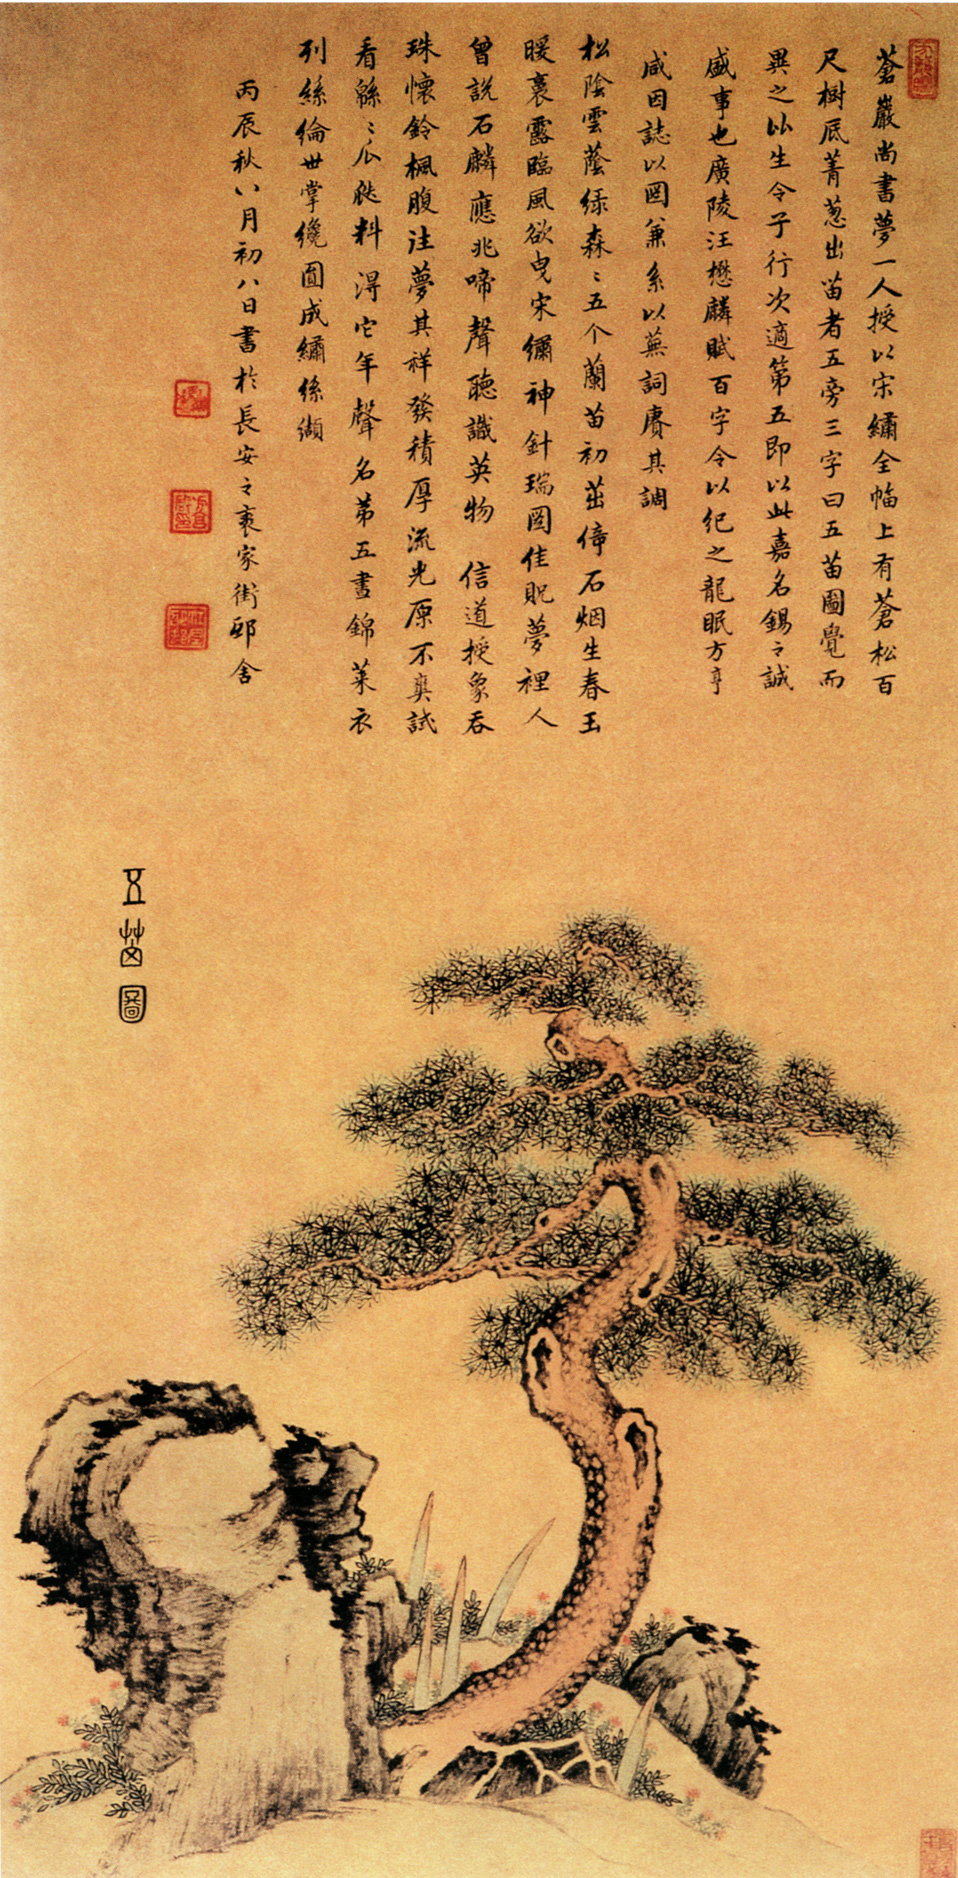 蒼巖尚書夢一人授以宋繡全幅上有蒼松百
尺樹底菁蔥出苗者五旁三字曰五苗圖覺而
異之以生令子行次適第五即以此嘉名錫之誠
盛事也廣陵汪懋麟賦百字令以紀之龍眠方亨
咸因誌以圖兼系以蕪詞賡其調
松陰雲蔭綠森〻五个蘭苗初茁倚石烟生春玉
暖裛露臨風欲曳宋繡神針瑞圖佳貺夢裡人
曾説石麟應兆啼聲聽識英物 信道授象吞
珠懷鈴楓腹注夢其祥發積厚流光原不爽試
看緜〻瓜瓞料得它年聲名第五晝錦萊衣
列絲綸世掌纔圓成繡絲纈
丙辰秋八月初八日書於長安之裘家街邸舍
五苗圖